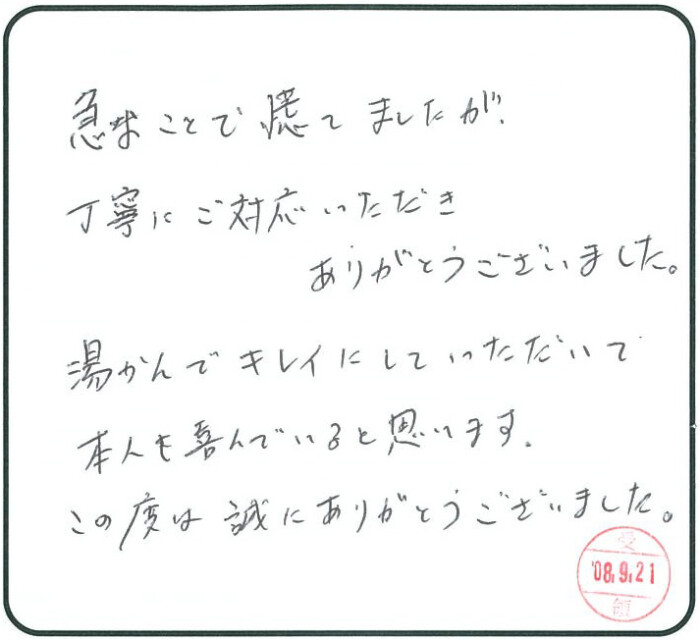 急なことで慌てましたが、
丁寧にご対応いただき
ありがとうございました。
湯かんでキレイにしていただいて
本人も喜んでいると思います.
この度は誠にありがとうございました。
受
'08.9.21
領